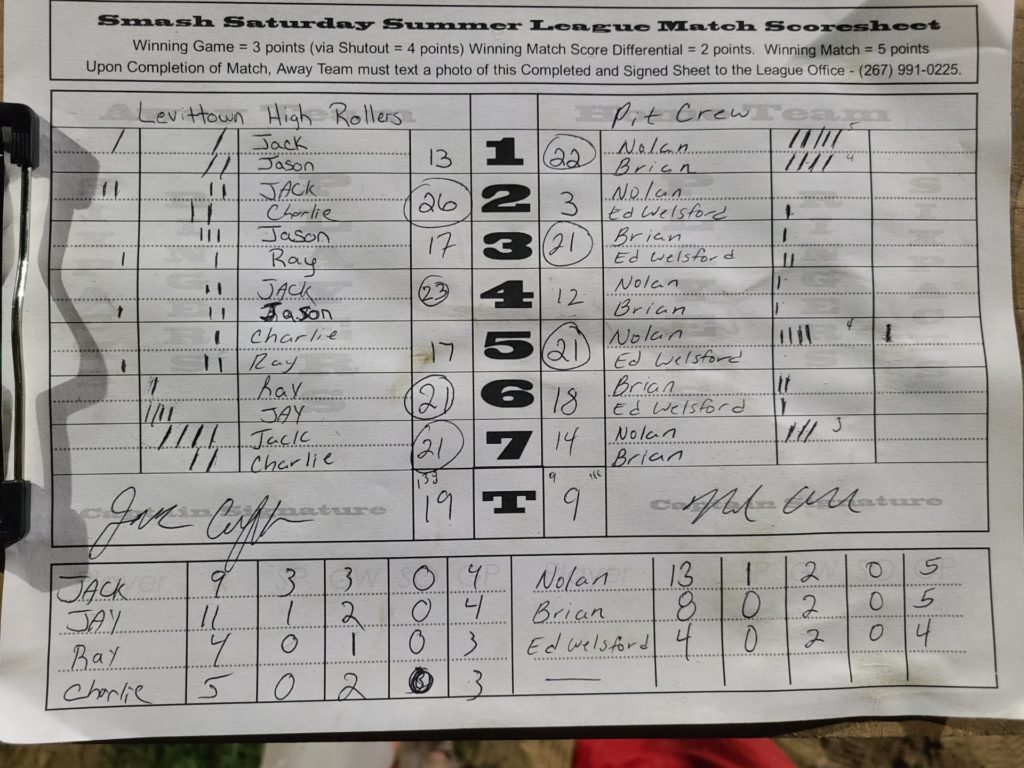 Smash Saturday Summer League Match Scoresheet
Winning Game = 3 points (via Shutout = 4 points) Winning Match Score Differential = 2 points. Winning Match = 5 points
Upon Completion of Match, Away Team must text a photo of this Completed and Signed Sheet to the League Office - (267) 991-0225.
Levittown High Rollers Pit Crew
Jack 13 1 22 Nolan 5
Jason Brian 4
JACK 26 2 3 Nolan
Charlie Ed Welsford
Jason 17 3 21 Brian
Ray Ed Welsford
JACK 23 4 12 Nolan
Jason Brian
Charlie 17 5 21 Nolan 4
Ray Ed Welsford
Ray 21 6 18 Brian
JAY Ed Welsford
Jack 21 7 14 Nolan 3
Charlie Brian
139 9 111
Captain Signature 19 T 9 Captain Signature
JACK 9 3 3 0 4 Nolan 13 1 2 0 5
JAY 11 1 2 0 4 Brian 8 0 2 0 5
Ray 4 0 1 0 3 Ed Welsford 4 0 2 0 4
Charlie 5 0 2 3